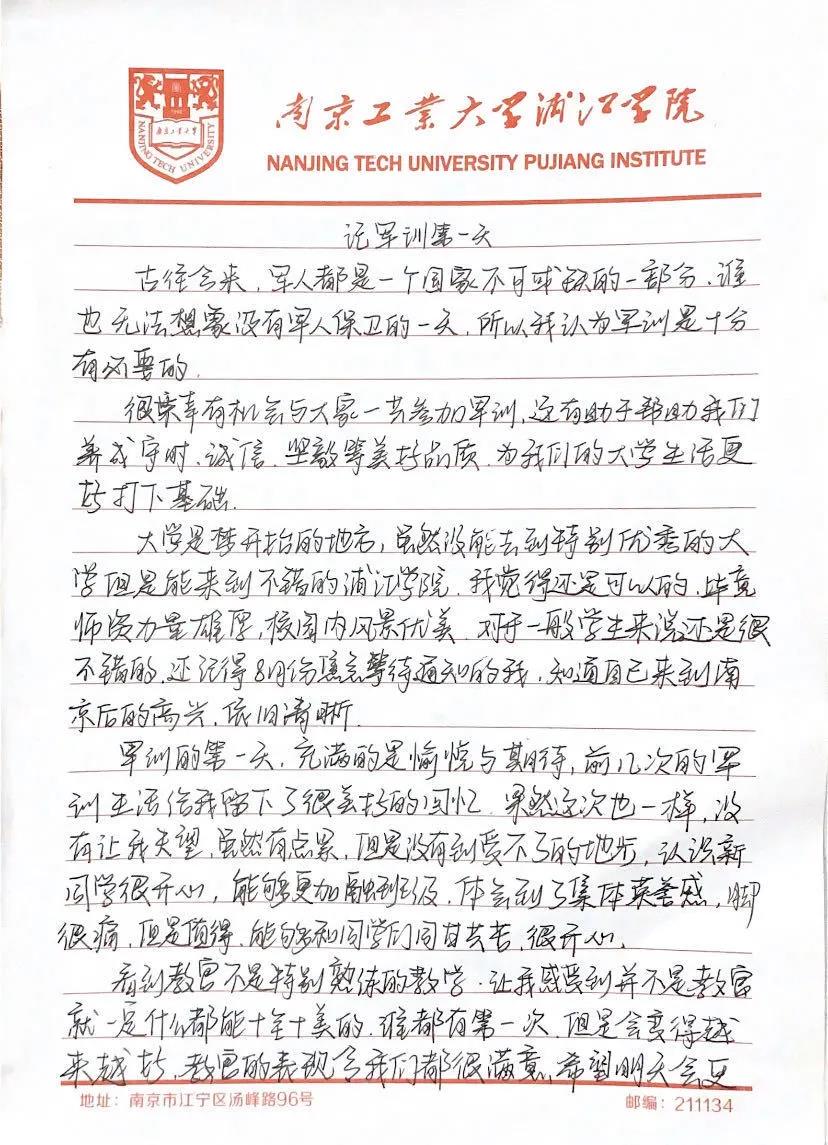 南京工业大学
NANJING TECH UNIVERSITY
南京工业大学浦江学院
NANJING TECH UNIVERSITY PUJIANG INSTITUTE
记军训第一天
古往今来,军人都是一个国家不可或缺的一部分,谁
也无法想象没有军人保卫的一天,所以我认为军训是十分
有必要的.
很荣幸有机会与大家一共参加军训,这有助于帮助我们
养成守时、诚信、坚毅等美好品质,为我们的大学生活更
好打下基础.
大学是梦开始的地方,虽然没能去到特别优秀的大
学但是能来到不错的浦江学院,我觉得还是可以的,毕竟
师资力量雄厚,校园内风景优美,对于一般学生来说还是很
不错的,还记得8月份焦急等待通知的我,知道自己来到南
京后的高兴,依旧清晰.
军训的第一天,充满的是愉悦与期待,前几次的军
训生活给我留下了很美好的回忆,果然这次也一样,没
有让我失望,虽然有点累,但是没有到受不了的地步,认识新
同学很开心,能够更加融到班级,体会到了集体荣誉感,脚
很痛,但是值得,能够和同学们同甘共苦,很开心.
看到教官不是特别熟练的教学,让我感受到并不是教官
就一定什么都能十全十美的,谁都有第一次,但是会变得越
来越好,教官的表现令我们都很满意,希望明天会更
地址:南京市江宁区汤峰路96号
邮编:211134